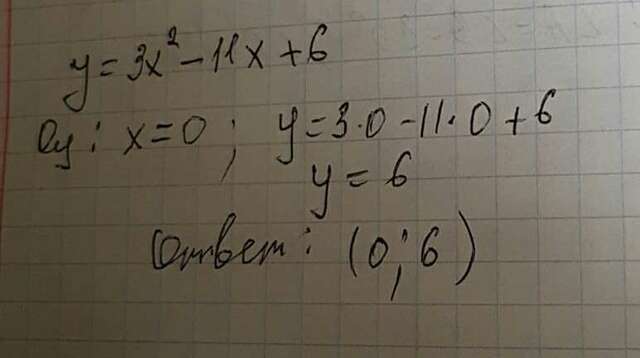 y = 3x² - 11x + 6
Oy: x = 0; y = 3·0 - 11·0 + 6
y = 6
Ответ: (0; 6)